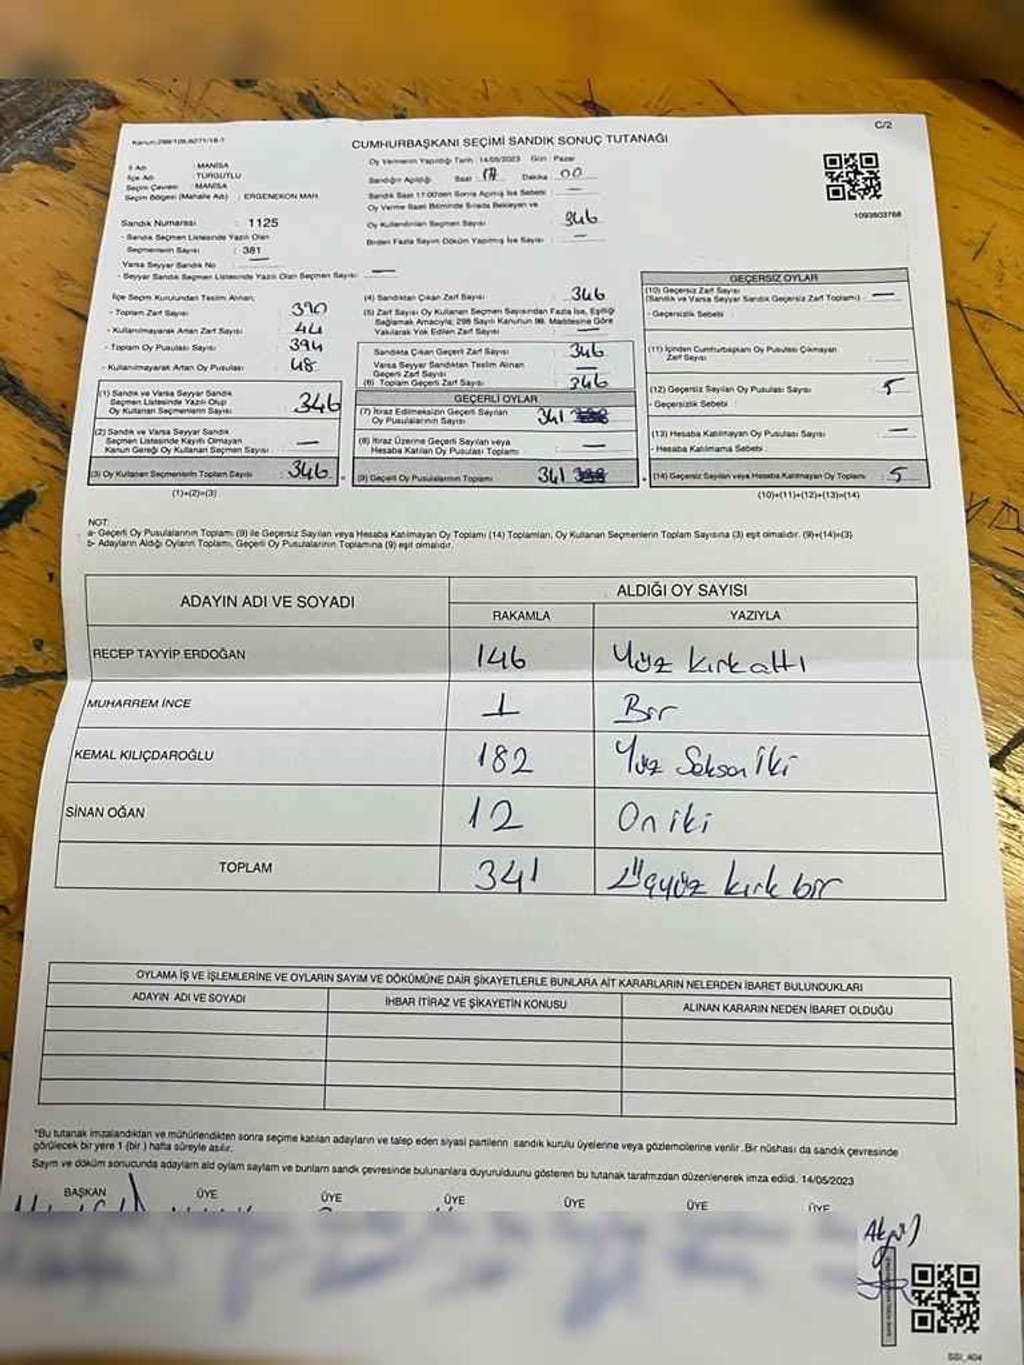 C/2
Kanun:298/105,6271/18-7
CUMHURBAŞKANI SEÇİMİ SANDIK SONUÇ TUTANAĞI
İl Adı : MANİSA
İlçe Adı : TURGUTLU
Seçim Çevresi : MANİSA
Seçim Bölgesi (Mahalle Adı) : ERGENEKON MAH.
Sandık Numarası : 1125
- Sandık Seçmen Listesinde Yazılı Olan
Seçmenlerin Sayısı : 381
Varsa Seyyar Sandık No : —
- Seyyar Sandık Seçmen Listesinde Yazılı Olan Seçmen Sayısı : —
Oy Vermenin Yapıldığı Tarih : 14/05/2023 Gün : Pazar
Sandığın Açıldığı Saat 17 Dakika 00
Sandık Saat 17:00'den Sonra Açılmış İse Sebebi : —
Oy Verme Saati Bitiminde Sırada Bekleyen ve
Oy Kullandırılan Seçmen Sayısı : 346
Birden Fazla Sayım Döküm Yapılmış İse Sayısı : —
1093603768
İlçe Seçim Kurulundan Teslim Alınan;
- Toplam Zarf Sayısı : 390
- Kullanılmayarak Artan Zarf Sayısı : 44
- Toplam Oy Pusulası Sayısı : 394
- Kullanılmayarak Artan Oy Pusulası : 48
(1) Sandık ve Varsa Seyyar Sandık
Seçmen Listesinde Yazılı Olup
Oy Kullanan Seçmenlerin Sayısı : 346
(2) Sandık ve Varsa Seyyar Sandık
Seçmen Listesinde Kayıtlı Olmayan
Kanun Gereği Oy Kullanan Seçmen Sayısı : —
(3) Oy Kullanan Seçmenlerin Toplam Sayısı : 346
(1)+(2)=(3)
(4) Sandıktan Çıkan Zarf Sayısı : 346
(5) Zarf Sayısı Oy Kullanan Seçmen Sayısından Fazla İse, Eşitliği
Sağlamak Amacıyla; 298 Sayılı Kanunun 98. Maddesine Göre
Yakılarak Yok Edilen Zarf Sayısı : —
Sandıkta Çıkan Geçerli Zarf Sayısı : 346
Varsa Seyyar Sandıktan Teslim Alınan
Geçerli Zarf Sayısı : —
(6) Toplam Geçerli Zarf Sayısı : 346
GEÇERLİ OYLAR
(7) İtiraz Edilmeksizin Geçerli Sayılan
Oy Pusulalarının Sayısı : 341
(8) İtiraz Üzerine Geçerli Sayılan veya
Hesaba Katılan Oy Pusulası Toplamı : —
(9) Geçerli Oy Pusulalarının Toplamı : 341
GEÇERSİZ OYLAR
(10) Geçersiz Zarf Sayısı
(Sandık ve Varsa Seyyar Sandık Geçersiz Zarf Toplamı) : —
- Geçersizlik Sebebi :
(11) İçinden Cumhurbaşkanı Oy Pusulası Çıkmayan
Zarf Sayısı :
(12) Geçersiz Sayılan Oy Pusulası Sayısı : 5
- Geçersizlik Sebebi :
(13) Hesaba Katılmayan Oy Pusulası Sayısı : —
- Hesaba Katılmama Sebebi :
(14) Geçersiz Sayılan veya Hesaba Katılmayan Oy Toplamı : 5
(10)+(11)+(12)+(13)=(14)
NOT:
a- Geçerli Oy Pusulalarının Toplamı (9) ile Geçersiz Sayılan veya Hesaba Katılmayan Oy Toplamı (14) Toplamları, Oy Kullanan Seçmenlerin Toplam Sayısına (3) eşit olmalıdır. (9)+(14)=(3)
b- Adayların Aldığı Oyların Toplamı, Geçerli Oy Pusulalarının Toplamına (9) eşit olmalıdır.
ADAYIN ADI VE SOYADI ALDIĞI OY SAYISI
RAKAMLA YAZIYLA
RECEP TAYYİP ERDOĞAN 146 Yüz kırk altı
MUHARREM İNCE 1 Bir
KEMAL KILIÇDAROĞLU 182 Yüz Seksen İki
SİNAN OĞAN 12 On iki
TOPLAM 341 Üçyüz kırk bir
OYLAMA İŞ VE İŞLEMLERİNE VE OYLARIN SAYIM VE DÖKÜMÜNE DAİR ŞİKAYETLERLE BUNLARA AİT KARARLARIN NELERDEN İBARET BULUNDUKLARI
ADAYIN ADI VE SOYADI İHBAR İTİRAZ VE ŞİKAYETİN KONUSU ALINAN KARARIN NEDEN İBARET OLDUĞU
*Bu tutanak imzalandıktan ve mühürlendikten sonra seçime katılan adayların ve talep eden siyasi partilerin sandık kurulu üyelerine veya gözlemcilerine verilir. Bir nüshası da sandık çevresinde
görülecek bir yere 1 (bir) hafta süreyle asılır.
Sayım ve döküm sonucunda adayların ald oyların sayların ve bunların sandk çevresinde bulunanlara duyurulduunu gösteren bu tutanak tarafmzdan düzenlenerek imza edildi. 14/05/2023
BAŞKAN ÜYE ÜYE ÜYE ÜYE ÜYE ÜYE